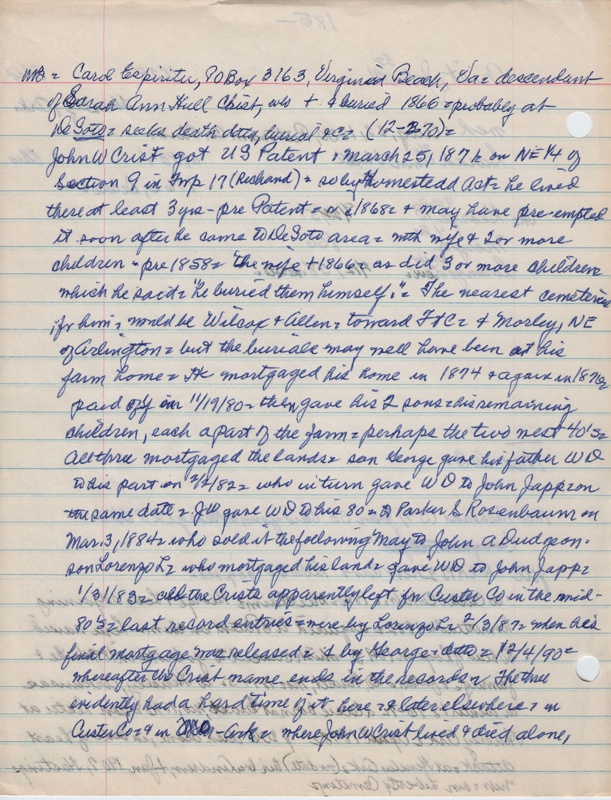 = Carol Espiritu, PO Box 3163, Virginia Beach, Va = descendant
of Sarah Ann Hull Christ, who + & buried 1866 = probably at
De Soto = seeks death date, burial &c = (12-2-70) =
John W Crist got US Patent, March 25, 187 on NE 1/4 of
Section 9 in Twp 17 (Richland) = so by Homestead Act = he lived
there at least 3 yrs - pre Patent = or 1868 = & may have pre-empted
it soon after he came to De Soto area = with wife & 2 or more
children = pre 1858 = the wife + 1866 = as did 3 or more children
which he said = "he buried them himself." = The nearest cemeteries
for him = would be Wilcox & Allen = toward Ft C = & Morley, NE
of Arlington = but the burials may well have been at his
farm home = He mortgaged his home in 1874 & again in 1876
paid off in 11/19/80 = then gave his 2 sons = his remaining
children, each a part of the farm = perhaps the two west 40's =
All three mortgaged the lands = son George gave his father WD
to his part in 2/ /82 = who in turn gave WD to John Japp = on
the same date = JW gave WD to his 80 = to Parker S Rosenbaum on
Mar. 3, 1884 = who sold it the following May to John A Dudgeon =
son Lorenzo L = who mortgaged his land = gave WD to John Japp =
1/31/83 = all the Crists apparently left for Custer Co in the mid-
80's = last record entries = were by Lorenzo L = 2/3/87 = when his
final mortgage was released = & by George = ditto = 12/4/90 =
whereafter the Crist name ends in the records = The three
evidently had a hard time of it here = & later elsewhere = in
Custer Co = & in - Ark = where John W Crist lived & died alone,